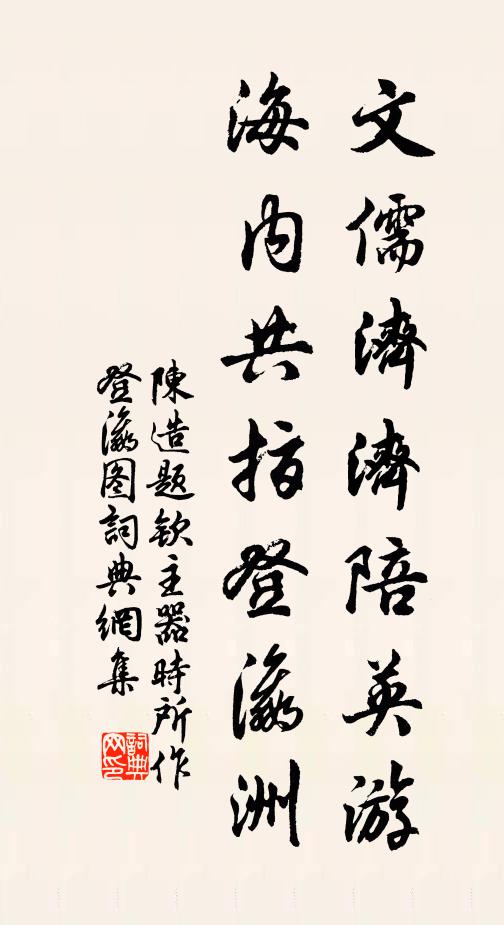 文儒濟濟陪英游
海内共指登瀛洲
陳造題欽主器時所作
登瀛图詞典網集
詞典網印